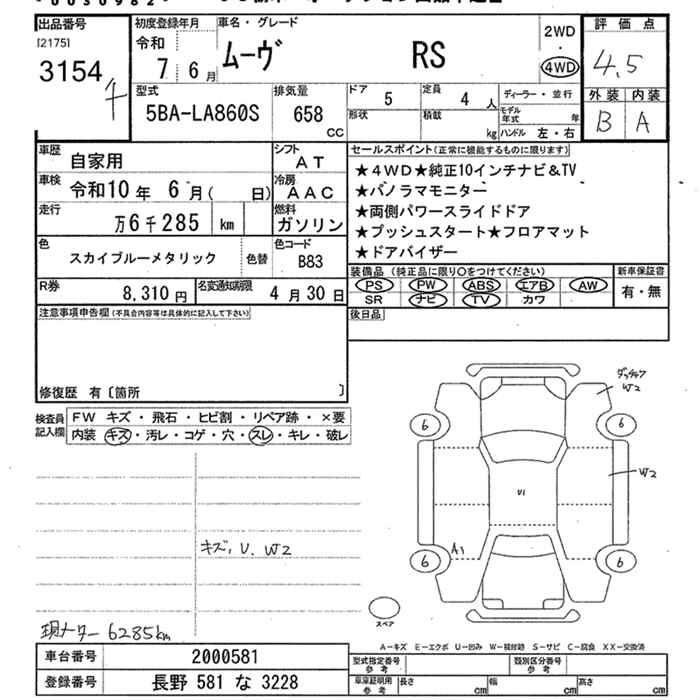 出品番号
[2175]
3154
初度登録年月
令和
7年 6月
車名・グレード
ムーヴ RS
2WD
・
4WD
評価点
4.5
外装 内装
B A
型式
5BA-LA860S
排気量
658
CC
ドア
5
定員
4 人
形状
積載
kg
ディーラー・並行
モデル年式 年
ハンドル 左・右
車歴
自家用
シフト
AT
車検
令和10年 6月( 日)
冷房
AAC
走行
万6千285 km
燃料
ガソリン
色
スカイブルーメタリック
色替
色コード
B83
R券
8,310円
名変通知期限
4月30日
セールスポイント(正常に機能するものに限ります)
★4WD★純正10インチナビ&TV
★パノラマモニター
★両側パワースライドドア
★プッシュスタート★フロアマット
★ドアバイザー
装備品(純正品に限り○をつけてください)
PS PW ABS エアB AW
SR ナビ TV カワ
新車保証書
有・無
後日品
注意事項申告欄(不具合内容等は具体的に記入して下さい)
修復歴 有〔箇所 〕
検査員記入欄
FW キズ・飛石・ヒビ割・リペア跡・×要
内装 キズ・汚レ・コゲ・穴・スレ・キレ・破レ
キズ, U. W2
W2
6 6
W2
U1
A1
6 6
スペア
現メーター 6285km
A-キズ E-エクボ U-凹ミ W-補修跡 S-サビ C-腐食 XX-交換済
車台番号
2000581
登録番号
長野 581 な 3228
型式指定番号
参考
類別区分番号
参考
車庫証明用
参考
長さ cm
幅 cm
高さ cm